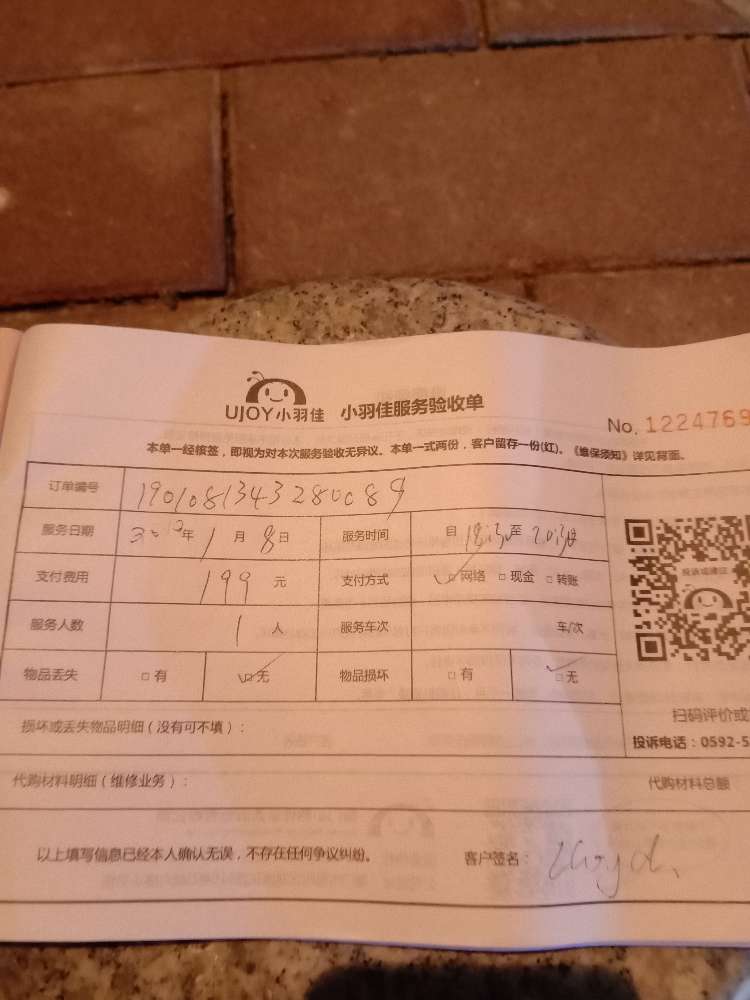 UJOY小羽佳 小羽佳服务验收单
No. 1224769
本单一经核签，即视为对本次服务验收无异议。本单一式两份，客户留存一份(红)。《维保须知》详见背面。
订单编号 190108134328
服务日期 年 1 月 8 日 服务时间 自 至
支付费用 199 元 支付方式 □网络 □现金 □转账
投诉或建议
服务人数 1 人 服务车次 车/次
物品丢失 □有 □无 物品损坏 □有 □无
扫码评价或
损坏或丢失物品明细（没有可不填）：
投诉电话：0592-5
代购材料明细（维修业务）： 代购材料总额
以上填写信息已经本人确认无误，不存在任何争议纠纷。 客户签名：